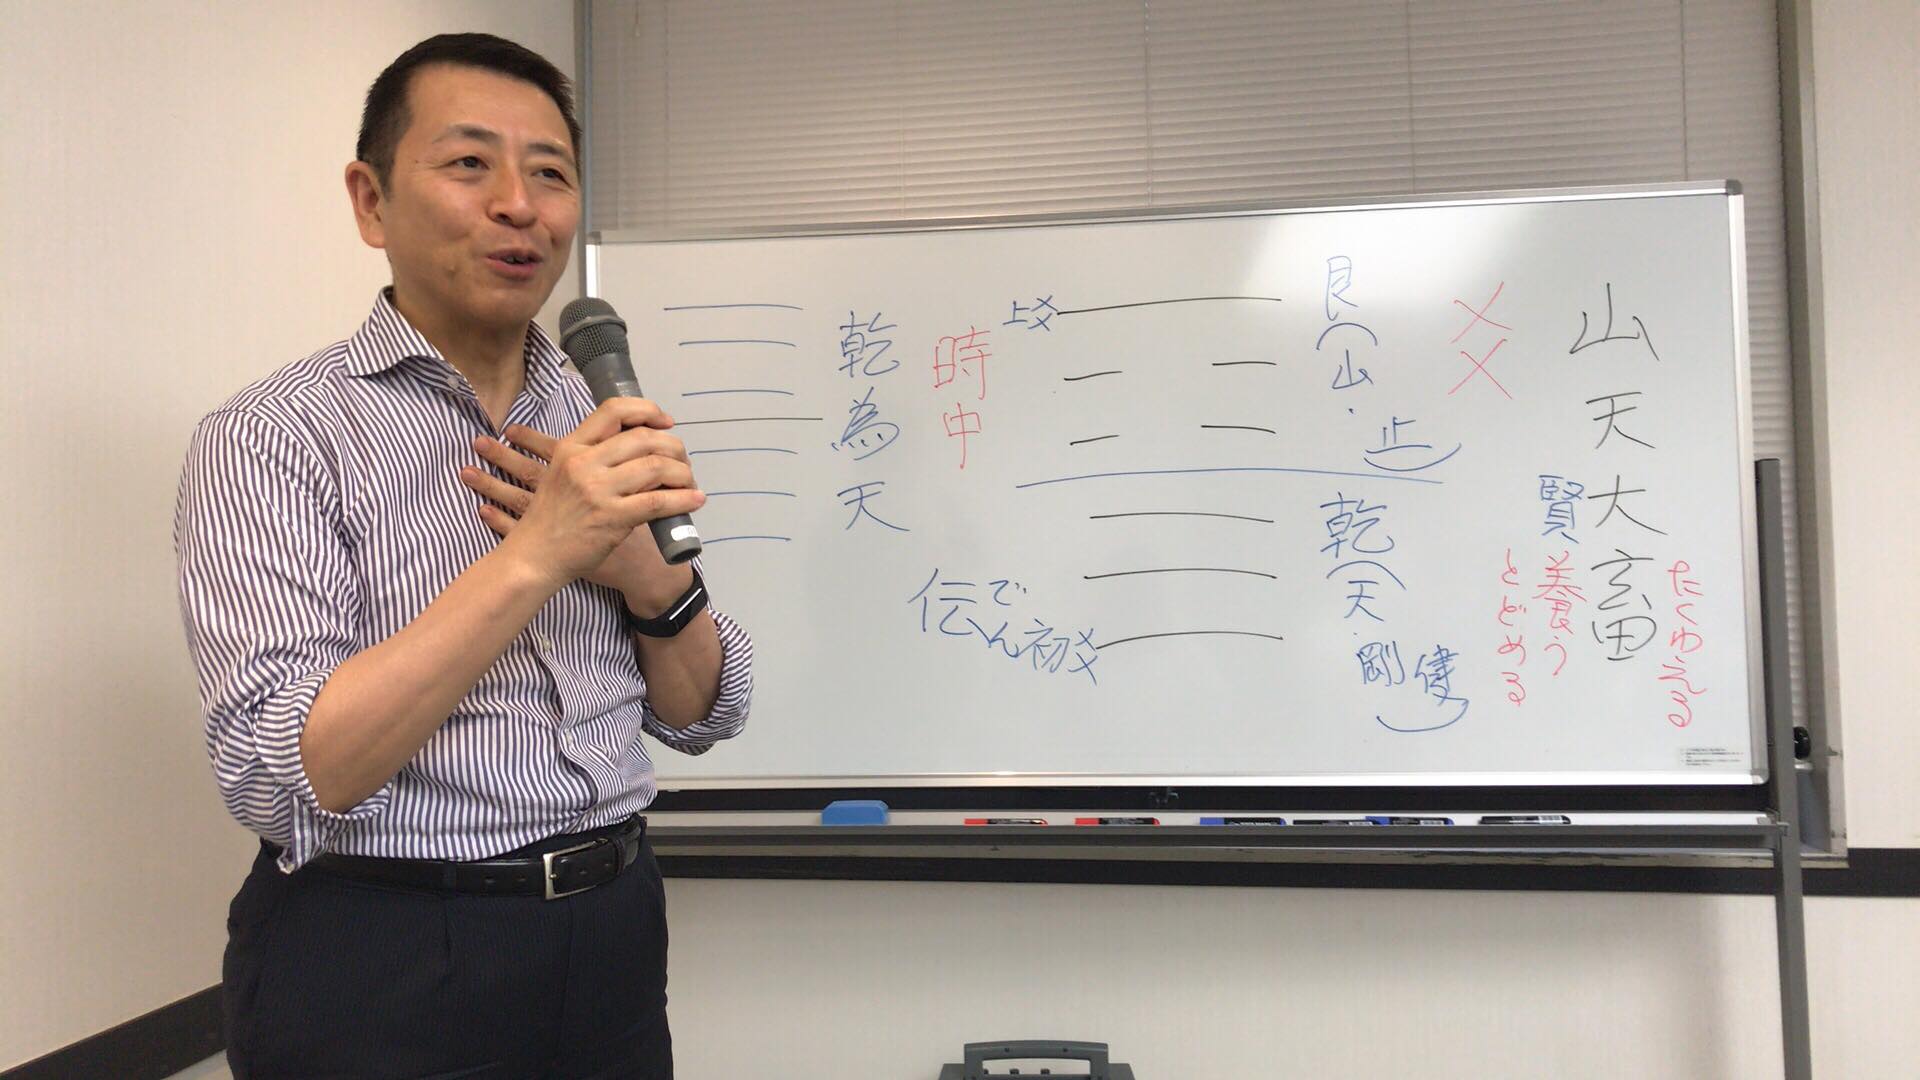 山天大畜
たくゆえる
賢
養う
とどめる
艮(山・止)
乾(天・剛健)
上爻
初爻
時中
でん
伝
乾為天